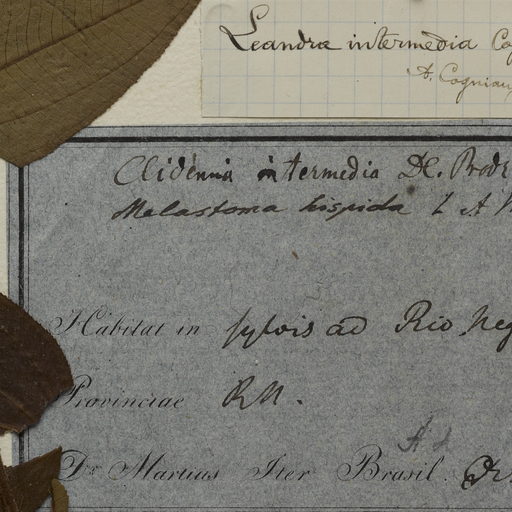 Leandra intermedia Cog
A. Cogniaux
Clidemia intermedia DC. Prodr
Melastoma hispida
Habitat in sylvis ad Rio Neg
Provinciae R.N.
Dr. Martius Iter Brasil.